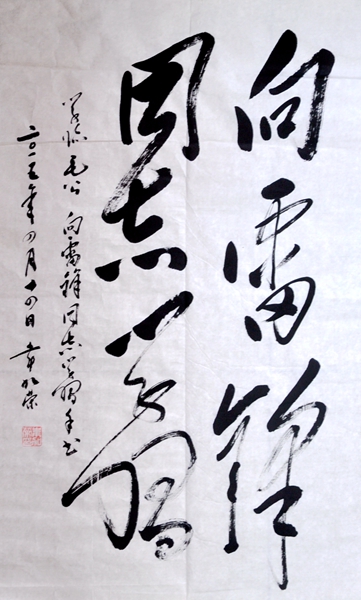 向雷锋
同志学习
学临毛公向雷锋同志学习手书
二〇一五年四月十四日